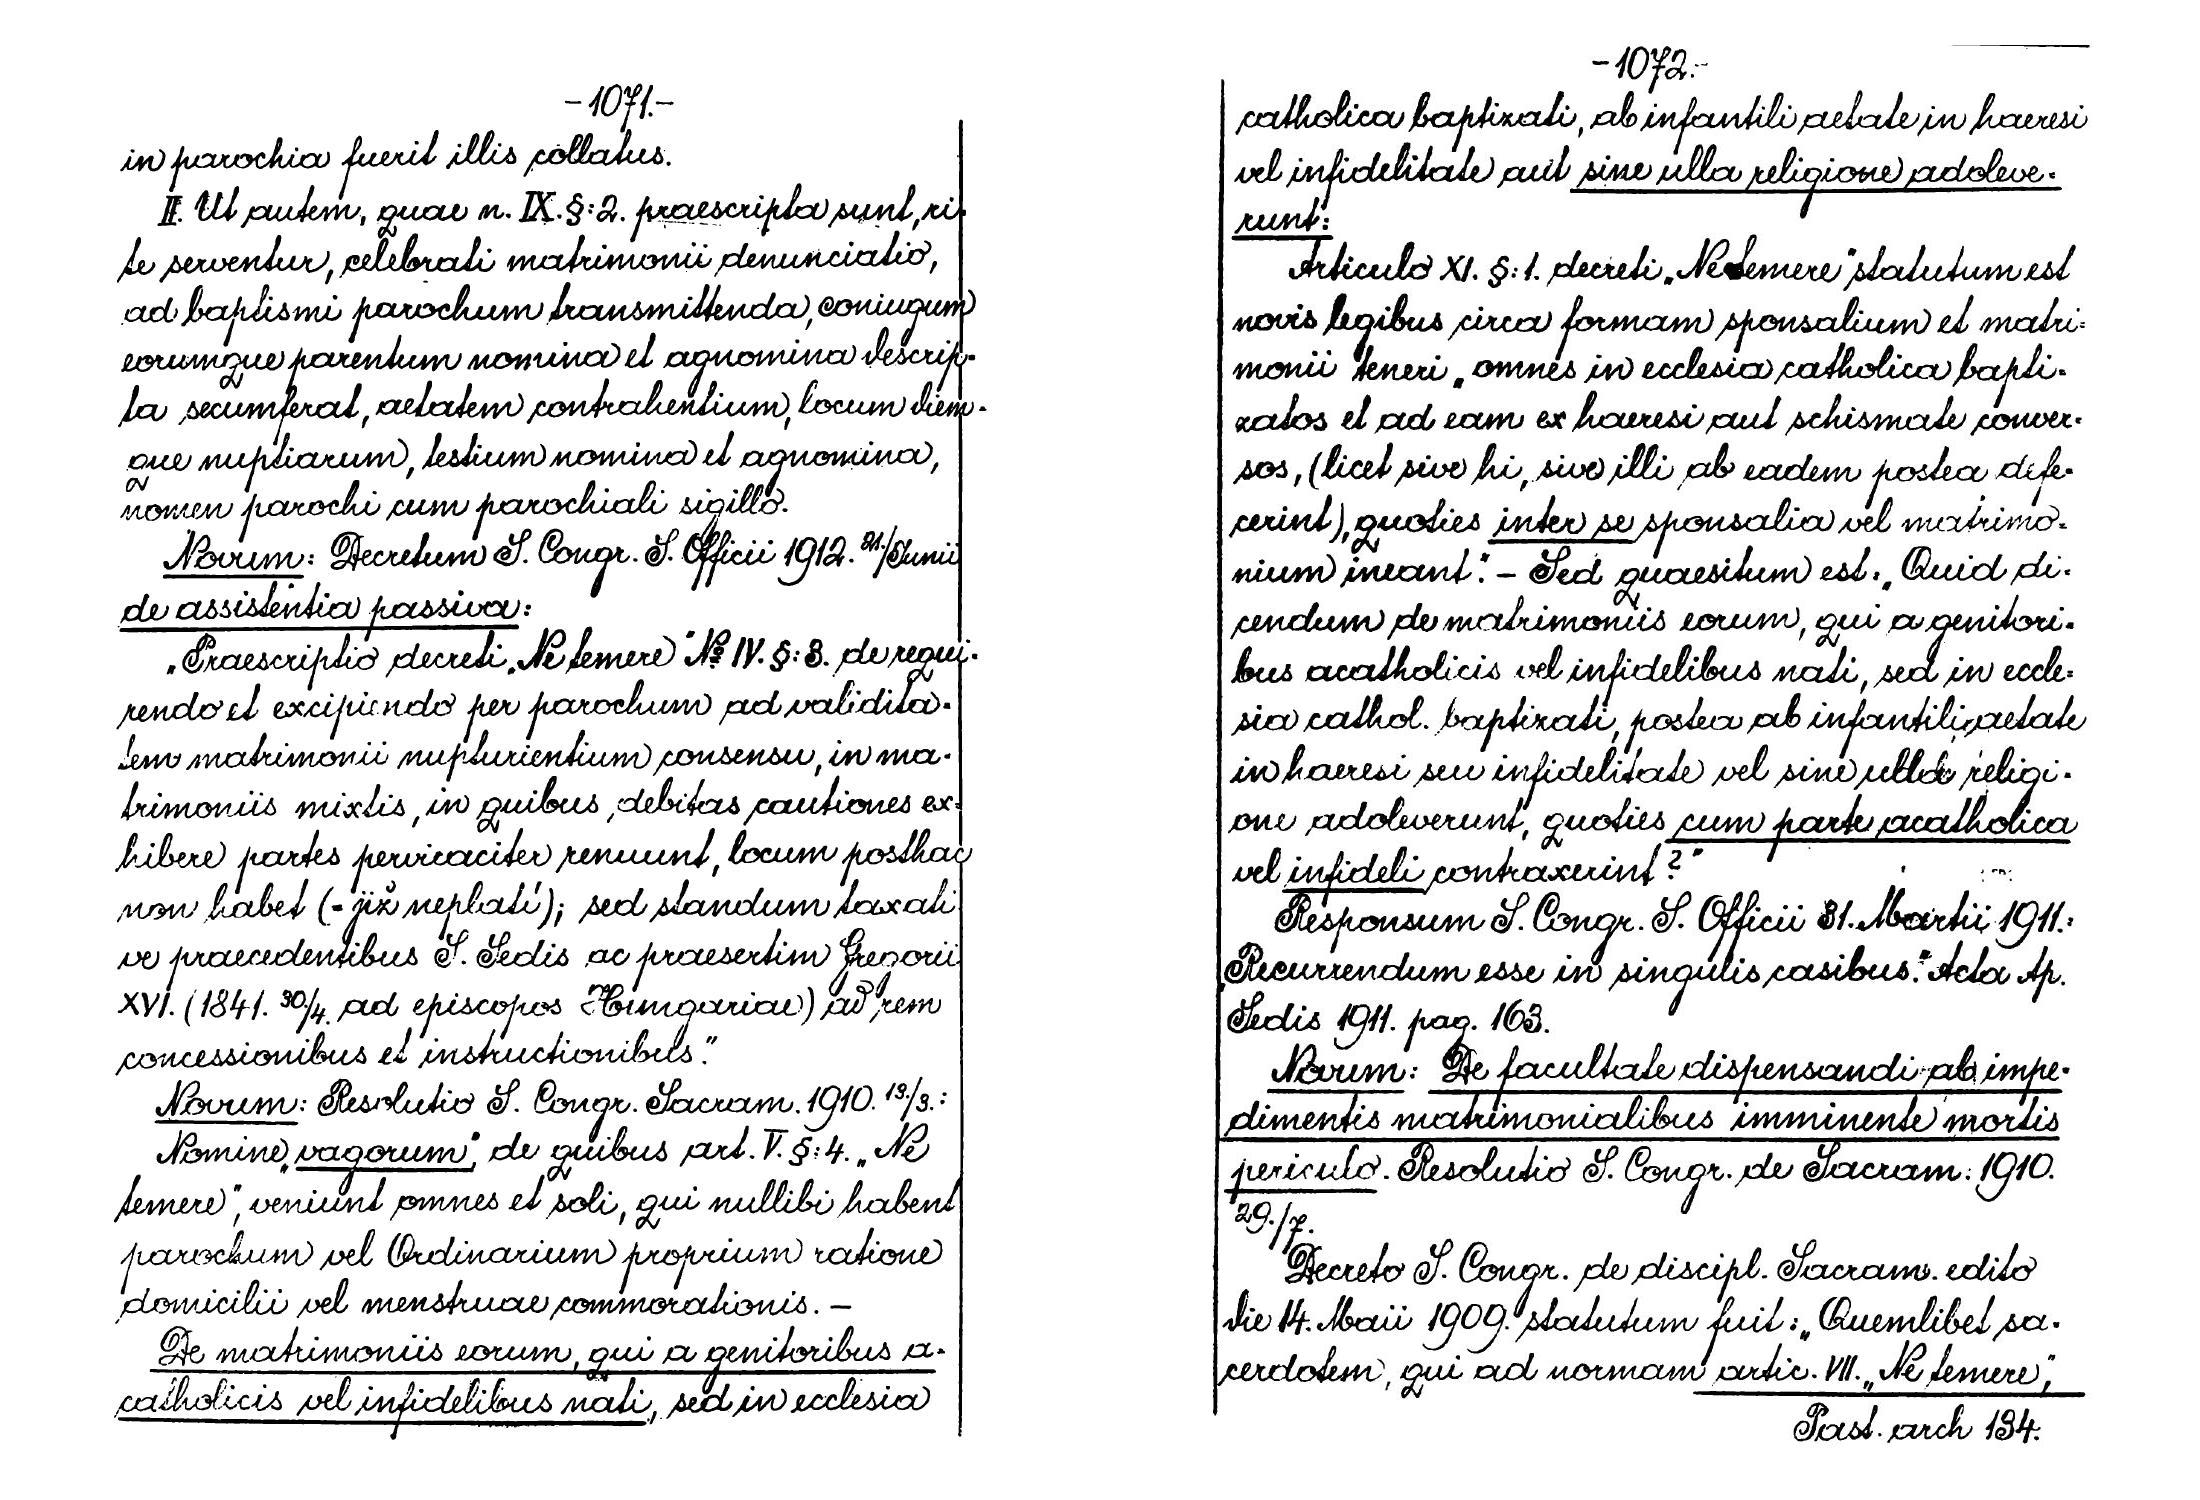 -1071.-
in parochia fuerit illis collatus.
II. Ut autem, quae n. IX. §:2. praescripta sunt, ri-
te serventur, celebrati matrimonii denunciatio,
ad baptismi parochum transmittenda, coniugum
eorumque parentum nomina et agnomina descrip-
ta secumferat, aetatem contrahentium, locum diem-
que nuptiarum, testium nomina et agnomina,
nomen parochi cum parochiali sigillo.
Novum: Decretum S. Congr. S. Officii 1912. 21./Junii
de assistentia passiva:
„Praescriptio decreti „Ne temere" No IV. §:3. de requi-
rendo et excipiendo per parochum ad validita-
tem matrimonii nupturientium consensu, in ma-
trimoniis mixtis, in quibus debitas cautiones ex-
hibere partes pervicaciter renuunt, locum posthac
non habet (- již neplatí); sed standum taxati
ve praecedentibus S. Sedis ac praesertim Gregorii
XVI. (1841. 30./4. ad episcopos Hungariae) ad rem
concessionibus et instructionibus."
Novum: Resolutio S. Congr. Sacram. 1910. 13./3.:
Nomine „vagorum", de quibus art. V. §:4. „Ne
temere", veniunt omnes et soli, qui nullibi habent
parochum vel Ordinarium proprium ratione
domicilii vel menstruae commorationis. -
De matrimoniis eorum, qui a genitoribus a-
catholicis vel infidelibus nati, sed in ecclesia
-1072.-
catholica baptizati, ab infantili aetate in haeresi
vel infidelitate aut sine ulla religione adoleve-
runt:
Articulo XI. §:1. decreti „Ne temere" statutum est
novis legibus circa formam sponsalium et matri-
monii teneri „omnes in ecclesia catholica bapti-
zatos et ad eam ex haeresi aut schismate conver-
sos, (licet sive hi, sive illi ab eadem postea defe-
cerint), quoties inter se sponsalia vel matrimo-
nium ineant". - Sed quaesitum est: „Quid di-
cendum de matrimoniis eorum, qui a genitori-
bus acatholicis vel infidelibus nati, sed in eccle-
sia cathol. baptizati, postea ab infantili aetate
in haeresi seu infidelitate vel sine ulla religi-
one adoleverunt, quoties cum parte acatholica
vel infideli contraxerint?"
Responsum S. Congr. S. Officii 31. Martii 1911.:
„Recurrendum esse in singulis casibus." Acta Ap.
Sedis 1911. pag. 163.
Novum: De facultate dispensandi ab impe-
dimentis matrimonialibus imminente mortis
periculo. Resolutio S. Congr. de Sacram. 1910.
29./7.
Decreto S. Congr. de discipl. Sacram. edito
die 14. Maii 1909. statutum fuit: „Quemlibet sa-
cerdotem, qui ad normam artic. VII. „Ne temere",
Past. arch 134.